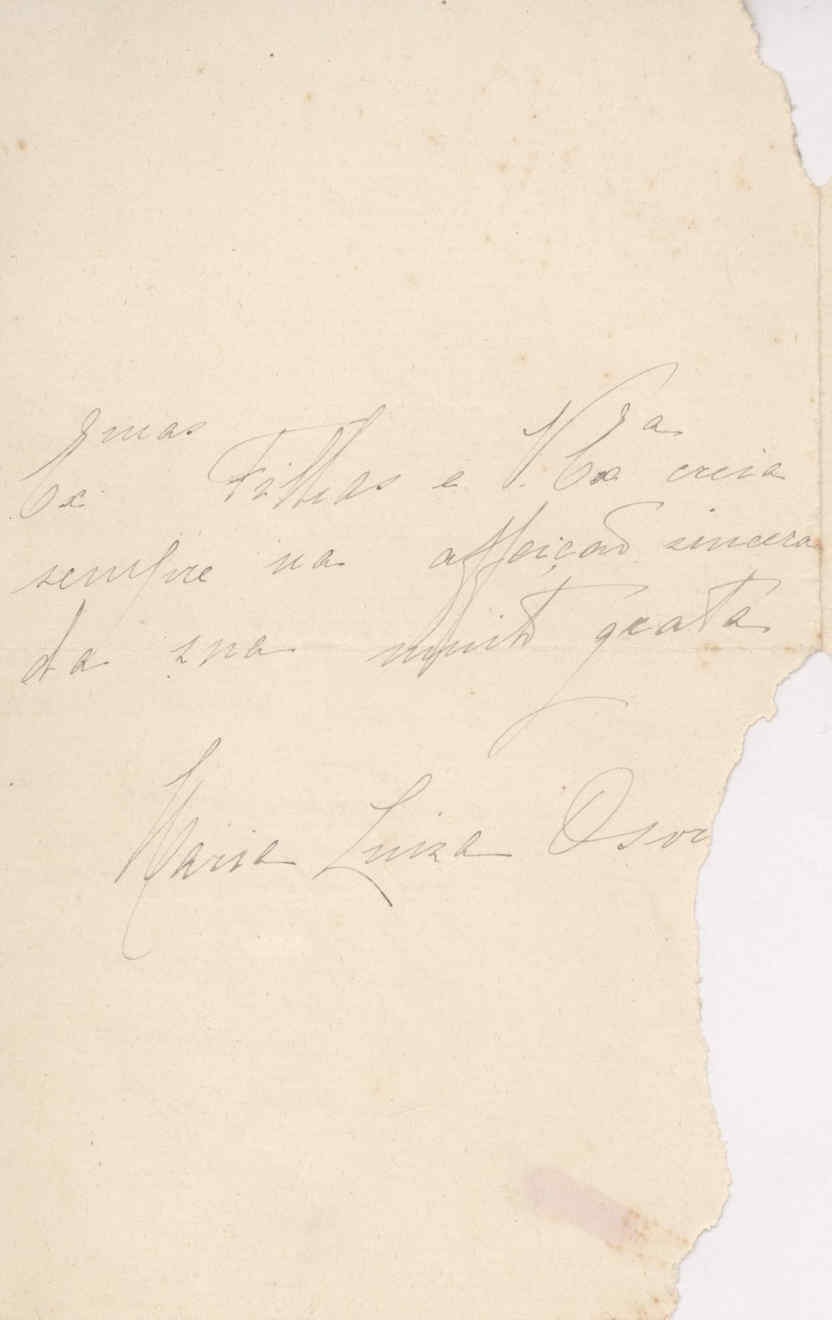 Ex.mas Filhas e V. Ex.a creia
sempre na affeição sincera
da sua muito grata
Maria Luiza Osor